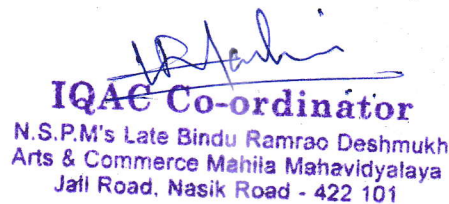 IQAC Co-ordinator
N.S.P.M's Late Bindu Ramrao Deshmukh
Arts & Commerce Mahila Mahavidyalaya
Jail Road, Nasik Road - 422 101